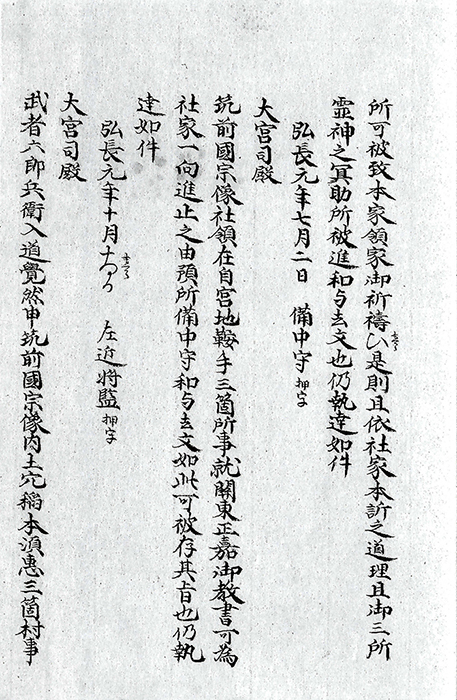 所可被致本家領家御祈禱候是則且依社家本訴之道理且御三所
霊神之冥助所被進和与去文也仍執達如件
弘長元年七月二日　備中守押字
大宮司殿
筑前國宗像社領在自宮地鞍手三箇所事就關東正嘉御教書可為
社家一向進止之由預所備中守和与去文如此可被存其旨也仍執
達如件
弘長元年十月　左近将監押字
大宮司殿
武者六郎兵衛入道覺然申筑前國宗像内土穴稲本須恵三箇村事